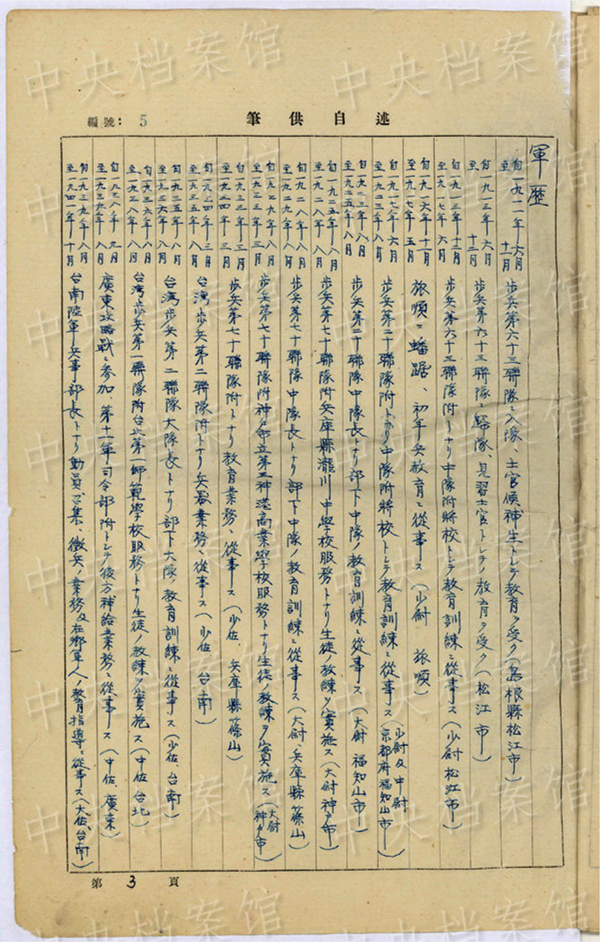 中央档案馆
編號：5
筆供自述
軍歴
自一九一一年六月 至 十一月 歩兵第六十三聯隊ニ入隊、士官候補生トシテ教育ヲ受ク（島根縣松江市）
自一九一三年六月 至 十二月 歩兵第六十三聯隊ニ帰隊、見習士官トシテノ教育ヲ受ク（松江市）
自一九一三年十二月 至一九一七年六月 歩兵第六十三聯隊附トナリ中隊附将校トシテ教育訓練ニ從事ス（少尉 松江市）
自一九一六年十一月 至一九一七年五月 旅順ニ蟠踞、初年兵教育ニ從事ス（少尉 旅順）
自一九一七年六月 至一九二三年八月 歩兵第二十聯隊附トナリ中隊附將校トシテ教育訓練ニ從事ス（少尉及中尉 京都府福知山市）
至一九二五年八月 歩兵第二十聯隊中隊長トナリ部下中隊ノ教育訓練ニ從事ス（大尉 福知山市）
自一九二五年八月 至一九二八年八月 歩兵第七十聯隊附兵庫縣瀧川中學校服務トナリ生徒ノ教練ヲ實施ス（大尉 神戸市）
自一九二八年八月 歩兵第七十聯隊中隊長トナリ部下中隊ノ教育訓練ニ從事ス（大尉、兵庫縣篠山）
歩兵第七十聯隊附神戸市立第二神港商業學校服務トナリ生徒ノ教練ヲ實施ス（大尉 神戸市）
至一九三四年三月 歩兵第七十聯隊附トナリ教育業務ニ從事ス（少佐、兵庫縣篠山）
自一九三四年三月 至一九三五年八月 台湾歩兵第二聯隊附トナリ兵器業務ニ從事ス（少佐 台南）
自一九三五年八月 至一九三六年八月 台湾歩兵第二聯隊大隊長トナリ部下大隊ノ教育訓練ニ從事ス（少佐 台南）
自一九三六年八月 至一九三八年八月 台湾歩兵第一聯隊附台北第一師範學校服務トナリ生徒ノ教練ヲ實施ス（中佐 台北）
自一九三八年九月 至一九三九年八月 廣東攻略戰ニ參加 第二十一軍司令部附トシテ後方補給業務ニ從事ス（中佐、廣東）
自一九三九年八月 至一九四二年十月 台南陸軍兵事部長トナリ動員、召集、徴兵ノ業務及在郷軍人ノ教育指導ニ從事ス（大佐、台南）
第 3 頁